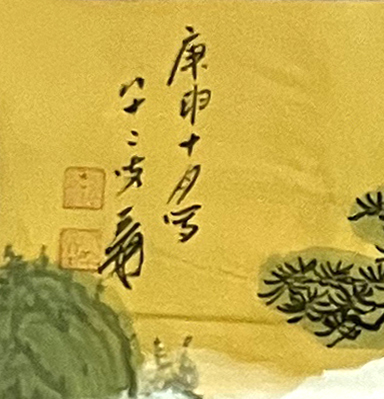 庚申十月写
八十二叟爰